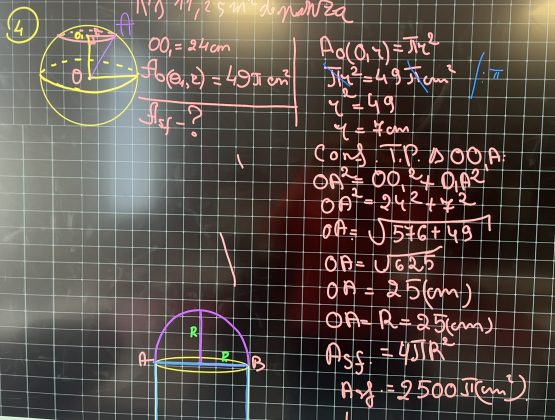 11,25 m² de pânză
4
A
O₁
r
O
OO₁ = 24cm
A₀(O₁,r) = 49π cm²
Asf = ?
A₀(O₁,r) = πr²
πr² = 49πcm² /:π
r² = 49
r = 7cm
Conf. T.P. Δ OO₁A:
OA² = OO₁² + O₁A²
OA² = 24² + 7²
OA = √576+49
OA = √625
OA = 25(cm)
OA = R = 25(cm)
Asf. = 4πR²
Asf. = 2500π(cm²)
R
A
R
B